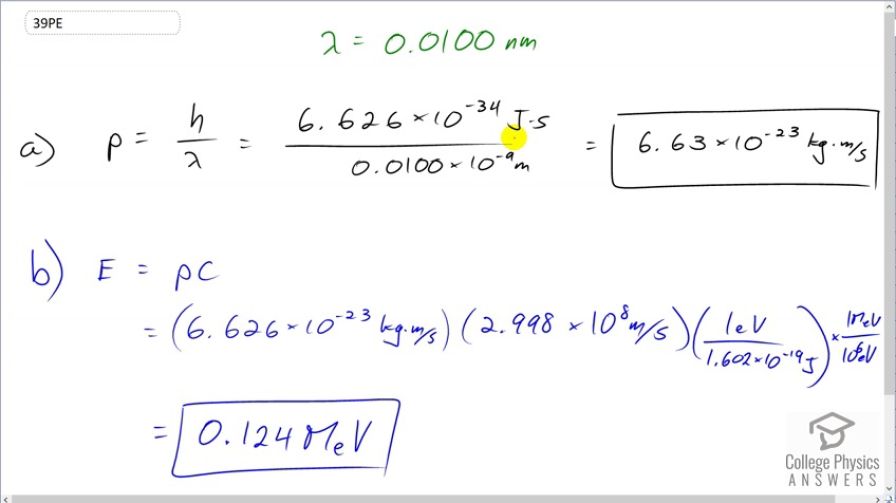 39PE
λ = 0.0100 nm
a) p = h/λ = 6.626 × 10⁻³⁴ J·s / 0.0100 × 10⁻⁹ m = 6.63 × 10⁻²³ kg·m/s
b) E = pc
= (6.626 × 10⁻²³ kg·m/s)(2.998 × 10⁸ m/s)(1eV / 1.602 × 10⁻¹⁹ J) × 1MeV / 10⁶eV
= 0.124 MeV
College Physics
ANSWERS